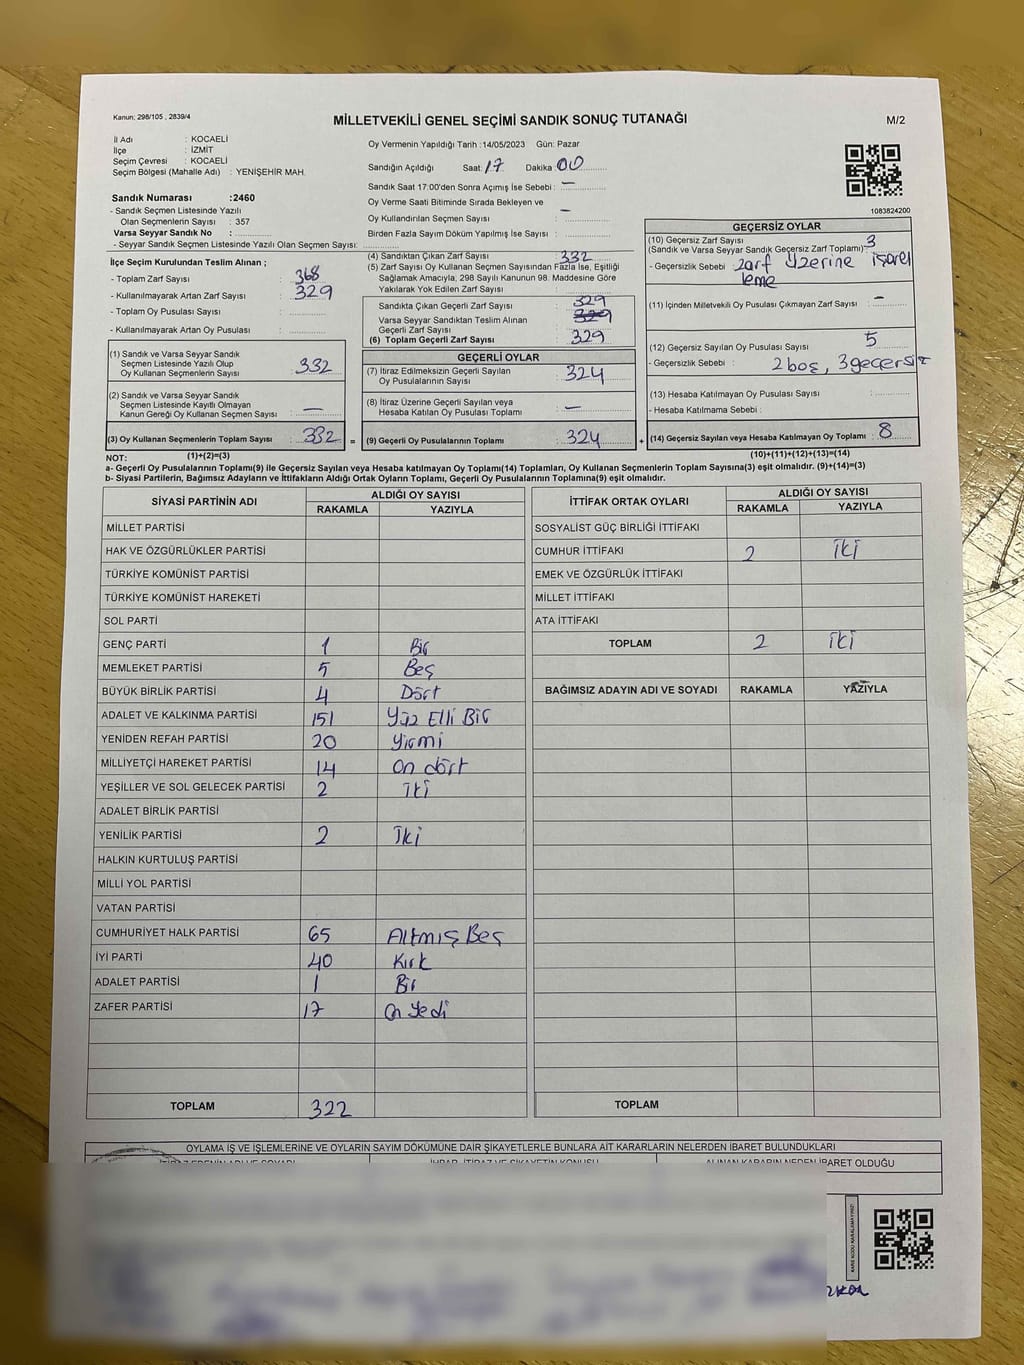 Kanun; 298/105 , 2839/4
MİLLETVEKİLİ GENEL SEÇİMİ SANDIK SONUÇ TUTANAĞI
M/2
İl Adı : KOCAELİ
İlçe : İZMİT
Seçim Çevresi : KOCAELİ
Seçim Bölgesi (Mahalle Adı) : YENİŞEHİR MAH.
Sandık Numarası :2460
- Sandık Seçmen Listesinde Yazılı
Olan Seçmenlerin Sayısı : 357
Varsa Seyyar Sandık No :
- Seyyar Sandık Seçmen Listesinde Yazılı Olan Seçmen Sayısı:
Oy Vermenin Yapıldığı Tarih :14/05/2023 Gün: Pazar
Sandığın Açıldığı Saat: 17 Dakika: 00
Sandık Saat 17:00'den Sonra Açımış İse Sebebi : —
Oy Verme Saati Bitiminde Sırada Bekleyen ve
Oy Kullandırılan Seçmen Sayısı : —
Birden Fazla Sayım Döküm Yapılmış İse Sayısı :
1083824200
İlçe Seçim Kurulundan Teslim Alınan ;
- Toplam Zarf Sayısı : 368
- Kullanılmayarak Artan Zarf Sayısı : 329
- Toplam Oy Pusulası Sayısı :
- Kullanılmayarak Artan Oy Pusulası :
(1) Sandık ve Varsa Seyyar Sandık
Seçmen Listesinde Yazılı Olup
Oy Kullanan Seçmenlerin Sayısı : 332
(2) Sandık ve Varsa Seyyar Sandık
Seçmen Listesinde Kayıtlı Olmayan
Kanun Gereği Oy Kullanan Seçmen Sayısı : —
(3) Oy Kullanan Seçmenlerin Toplam Sayısı : 332 =
(4) Sandıktan Çıkan Zarf Sayısı : 332
(5) Zarf Sayısı Oy Kullanan Seçmen Sayısından Fazla İse, Eşitliği
Sağlamak Amacıyla; 298 Sayılı Kanunun 98. Maddesine Göre
Yakılarak Yok Edilen Zarf Sayısı :
Sandıkta Çıkan Geçerli Zarf Sayısı : 329
Varsa Seyyar Sandıktan Teslim Alınan
Geçerli Zarf Sayısı : 329
(6) Toplam Geçerli Zarf Sayısı : 329
GEÇERLİ OYLAR
(7) İtiraz Edilmeksizin Geçerli Sayılan
Oy Pusulalarının Sayısı : 324
(8) İtiraz Üzerine Geçerli Sayılan veya
Hesaba Katılan Oy Pusulası Toplamı : —
(9) Geçerli Oy Pusulalarının Toplamı : 324 +
GEÇERSİZ OYLAR
(10) Geçersiz Zarf Sayısı 3
(Sandık ve Varsa Seyyar Sandık Geçersiz Zarf Toplamı)
- Geçersizlik Sebebi : zarf üzerine işaret
leme
(11) İçinden Milletvekili Oy Pusulası Çıkmayan Zarf Sayısı : —
(12) Geçersiz Sayılan Oy Pusulası Sayısı : 5
- Geçersizlik Sebebi : 2 boş, 3 geçersiz
(13) Hesaba Katılmayan Oy Pusulası Sayısı :
- Hesaba Katılmama Sebebi :
(14) Geçersiz Sayılan veya Hesaba Katılmayan Oy Toplamı : 8
NOT: (1)+(2)=(3) (10)+(11)+(12)+(13)=(14)
a- Geçerli Oy Pusulalarının Toplamı(9) ile Geçersiz Sayılan veya Hesaba Katılmayan Oy Toplamı(14) Toplamları, Oy Kullanan Seçmenlerin Toplam Sayısına(3) eşit olmalıdır. (9)+(14)=(3)
b- Siyasi Partilerin, Bağımsız Adayların ve İttifakların Aldığı Ortak Oyların Toplamı, Geçerli Oy Pusulalarının Toplamına(9) eşit olmalıdır.
SİYASİ PARTİNİN ADI ALDIĞI OY SAYISI
RAKAMLA YAZIYLA
MİLLET PARTİSİ
HAK VE ÖZGÜRLÜKLER PARTİSİ
TÜRKİYE KOMÜNİST PARTİSİ
TÜRKİYE KOMÜNİST HAREKETİ
SOL PARTİ
GENÇ PARTİ 1 Bir
MEMLEKET PARTİSİ 5 Beş
BÜYÜK BİRLİK PARTİSİ 4 Dört
ADALET VE KALKINMA PARTİSİ 151 Yüz Elli Bir
YENİDEN REFAH PARTİSİ 20 Yirmi
MİLLİYETÇİ HAREKET PARTİSİ 14 On dört
YEŞİLLER VE SOL GELECEK PARTİSİ 2 İki
ADALET BİRLİK PARTİSİ
YENİLİK PARTİSİ 2 İki
HALKIN KURTULUŞ PARTİSİ
MİLLİ YOL PARTİSİ
VATAN PARTİSİ
CUMHURİYET HALK PARTİSİ 65 Altmış Beş
İYİ PARTİ 40 Kırk
ADALET PARTİSİ 1 Bir
ZAFER PARTİSİ 17 On Yedi
TOPLAM 322
İTTİFAK ORTAK OYLARI ALDIĞI OY SAYISI
RAKAMLA YAZIYLA
SOSYALİST GÜÇ BİRLİĞİ İTTİFAKI
CUMHUR İTTİFAKI 2 İki
EMEK VE ÖZGÜRLÜK İTTİFAKI
MİLLET İTTİFAKI
ATA İTTİFAKI
TOPLAM 2 İki
BAĞIMSIZ ADAYIN ADI VE SOYADI RAKAMLA YAZIYLA
TOPLAM
OYLAMA İŞ VE İŞLEMLERİNE VE OYLARIN SAYIM DÖKÜMÜNE DAİR ŞİKAYETLERLE BUNLARA AİT KARARLARIN NELERDEN İBARET BULUNDUKLARI
İTİRAZ EDENİN ADI VE SOYADI İHBAR, İTİRAZ VE ŞİKAYETİN KONUSU ALINAN KARARIN NEDEN İBARET OLDUĞU
KARE KODU KARALAMAYINIZ!